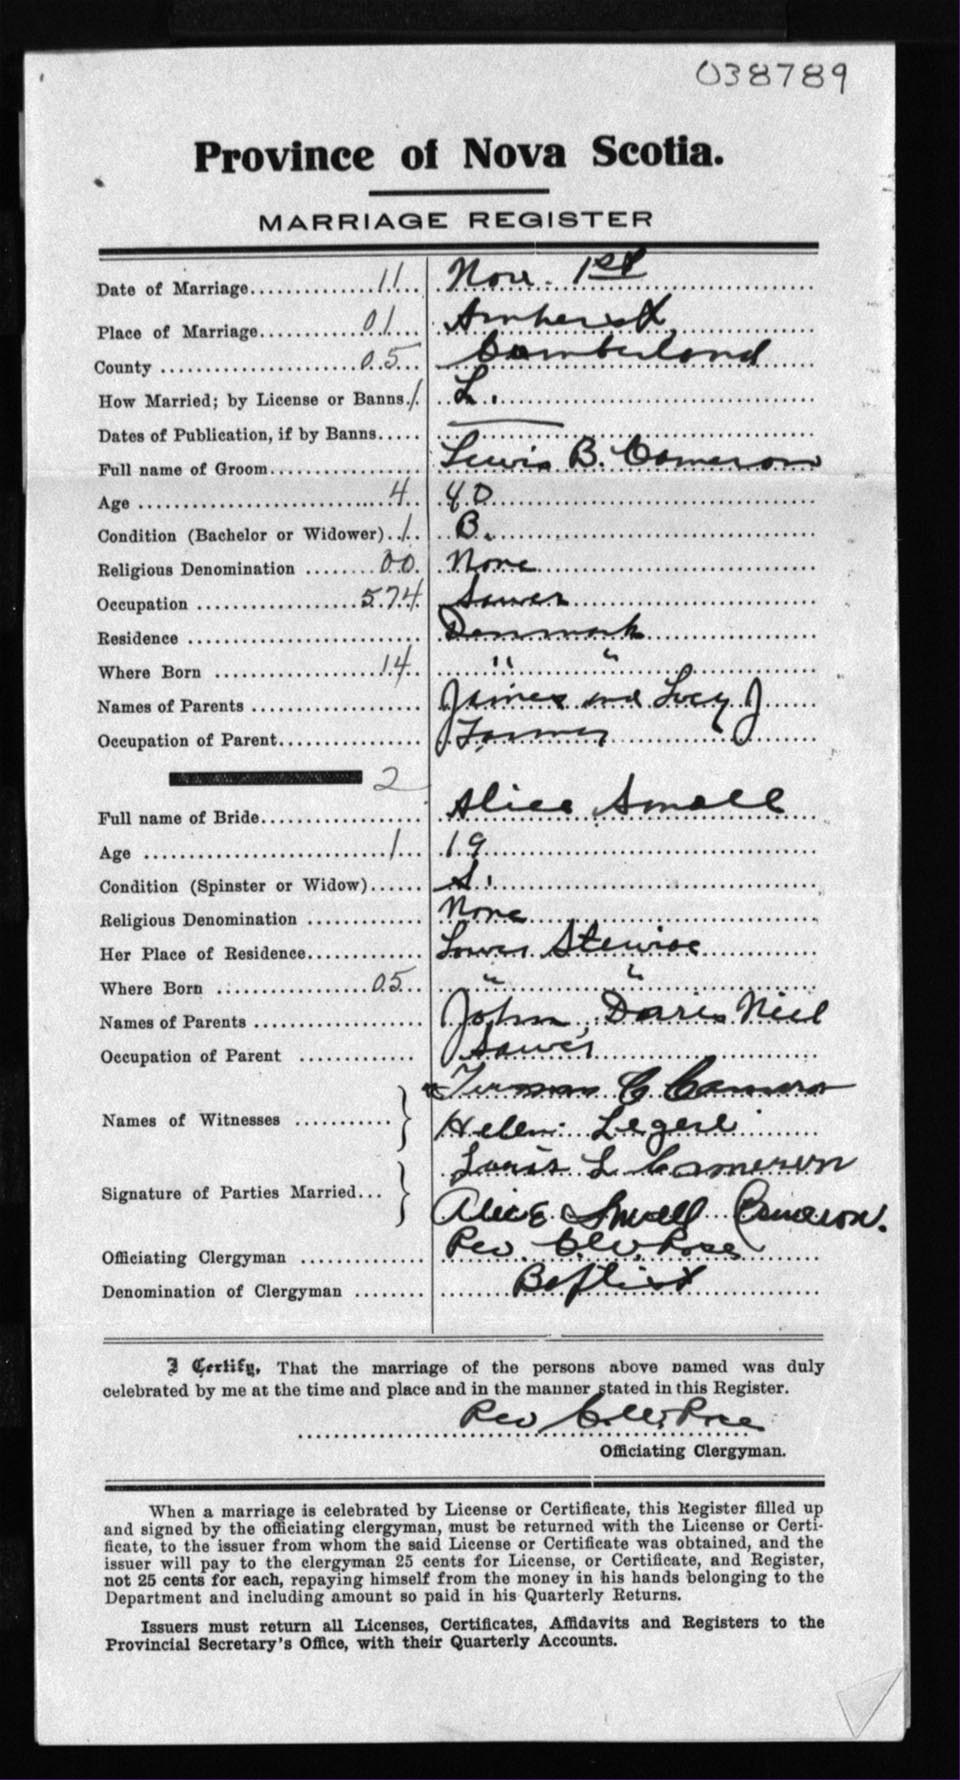 038789
Province of Nova Scotia.
MARRIAGE REGISTER
Date of Marriage............... 11 .. Nov. 1st
Place of Marriage............ 01 ... Amherst
County ..................... 05 ... Cumberland
How Married; by License or Banns. 1. L.
Dates of Publication, if by Banns..... —
Full name of Groom................. Lewis B. Cameron
Age .......................... 4 .. 40
Condition (Bachelor or Widower).. 1 . B.
Religious Denomination ........ 00. None
Occupation .................. 574 Sawer
Residence .......................... Denmark
Where Born ................... 14 .. " "
Names of Parents ................... James and Lucy J
Occupation of Parent................ Farmer
2
Full name of Bride.................. Alice Small
Age .......................... 1 ... 19
Condition (Spinster or Widow)...... S.
Religious Denomination ............. None
Her Place of Residence............. Lower
Where Born ................. 05 .. " "
Names of Parents ................... John,
Occupation of Parent .............
Names of Witnesses ........... C Cameron
Helen Legere
Signature of Parties Married... L Cameron
Alice Small Cameron.
Officiating Clergyman ............. Rev. C.W. Rose
Denomination of Clergyman ........ Baptist
I Certify, That the marriage of the persons above named was duly
celebrated by me at the time and place and in the manner stated in this Register.
Rev C.W. Rose
Officiating Clergyman.
When a marriage is celebrated by License or Certificate, this Register filled up
and signed by the officiating clergyman, must be returned with the License or Certi-
ficate, to the issuer from whom the said License or Certificate was obtained, and the
issuer will pay to the clergyman 25 cents for License, or Certificate, and Register,
not 25 cents for each, repaying himself from the money in his hands belonging to the
Department and including amount so paid in his Quarterly Returns.
Issuers must return all Licenses, Certificates, Affidavits and Registers to the
Provincial Secretary's Office, with their Quarterly Accounts.